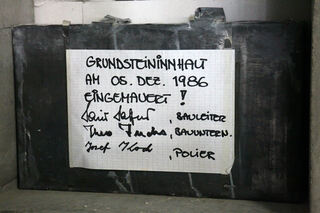 GRUNDSTEININNHALT
AM 05. DEZ. 1986
EINGEMAUERT !
, BAULEITER
Theo Fuchs, BAUUNTERN.
Josef Koch, POLIER